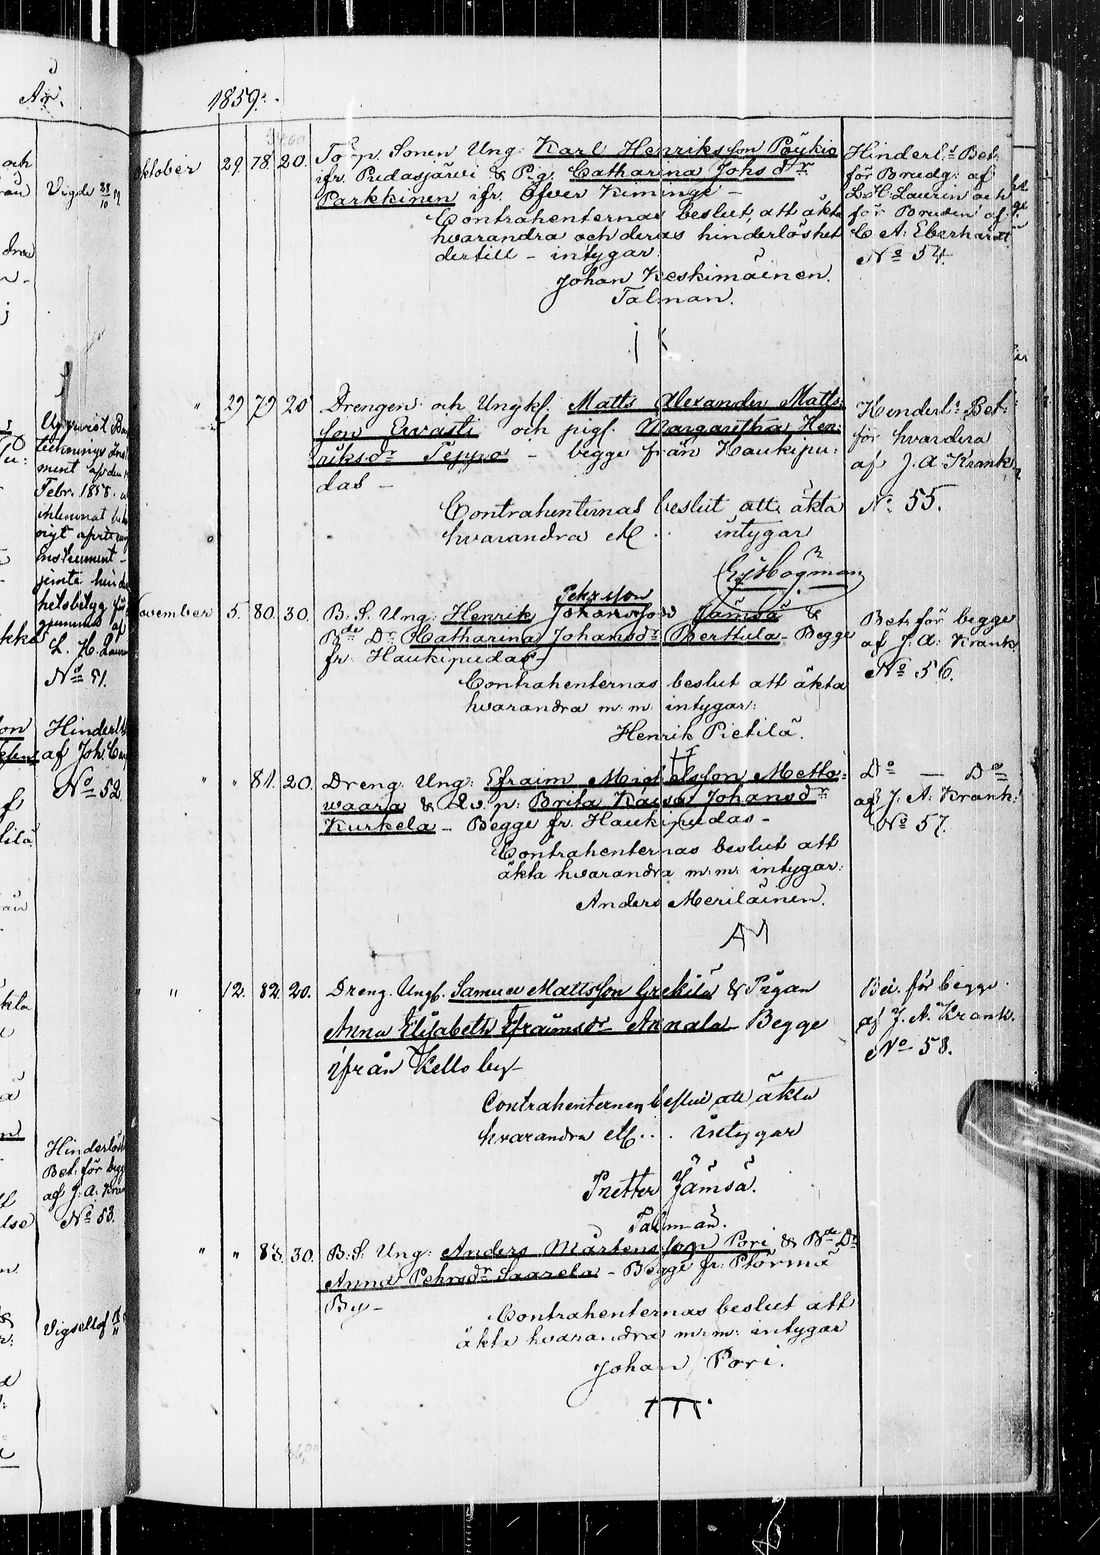 År.
1859.
Oktober 29. 78. 20. Torp. Sonen Ung: Karl Henriksson Pöykiö
ifr. Pudasjärvi & P.g. Catharina Johsdr
Parkkinen ifr. Öfver Kiminge –
Contrahenternas beslut, att äkta
hvarandra och deras hinderlöshet
dertill – intygar
Johan Keskimäinen.
Talman.
Hinderl:s Bet:
för Brudg: af
L. H. Laurin och
för Bruden af
C. A. Eberhardt
No 54.
" 29 79 20 Drengen och Ungk. Matts Alexander Matts-
son Ervasti och pig. Margaretha Hen-
riksdr Seppo – begge från Haukipu-
das –
Contrahenternas beslut att äkta
hvarandra etc .. intygar
Hinderl:s Bet:
för hvardera
af J. A. Krank
No 55.
November 5. 80. 30. B. S. Ung: Henrik Johansson Jämsä &
Pehrsson
Bde Dr Catharina Johansdr Berttula – Begge
fr. Haukipudas –
Contrahenternas beslut att äkta
hvarandra m: m: intygar:
Henrik Pietilä.
Bet. för begge
af J. A. Krank
No 56.
" " 81. 20. Dreng. Ung: Efraim Michelsson Metto-
waara & Qv. p: Brita Kaisa Johansdr
Kurkela – Begge fr. Haukipudas –
Contrahenternas beslut att
äkta hvarandra m: m: intygar:
Anders Meriläinen.
AM
Do — Do
af J. A. Krank.
No 57.
" " 12. 82. 20. Dreng. Ungk. Samuel Mattsson Grekilä & Pigan
Anna Elisabeth Efraimsdr Annala Begge
ifrån Kello by –
Contrahenternes beslut att äkta
hvarandra etc... intygar
Pretter Jämsä.
Talman.
Bet. för begge
af J. A. Krank.
No 58.
" " 83. 30. B. S. Ung: Anders Mårtensson Pori & Bde Dr
Anna Pehrsdr Saarela – Begge fr.
By –
Contrahenternas beslut att
äkta hvarandra m: m: intygar
Johan Pori.
Vigde 28/10
Febr. 1858.
L. H.
No 51.
af Joh.
No 52
Bet: för
af J. A.
No 53.